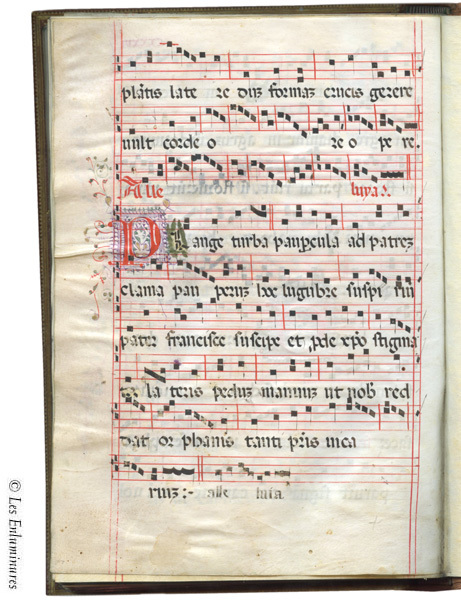 plantis late re dum formam crucis gerere
vult corde o re o pe re.
Alle luya.
Plange turba paupercula ad patrem
clama pau perum hoc lugubre suspi rium
pater francisce suscipe et p̄de xp̄o stigma
ta la teris pedum manuum ut nob̄ red
dat or phanis tanti p̄ris vica
rium:- alle luia
© Les Enluminures